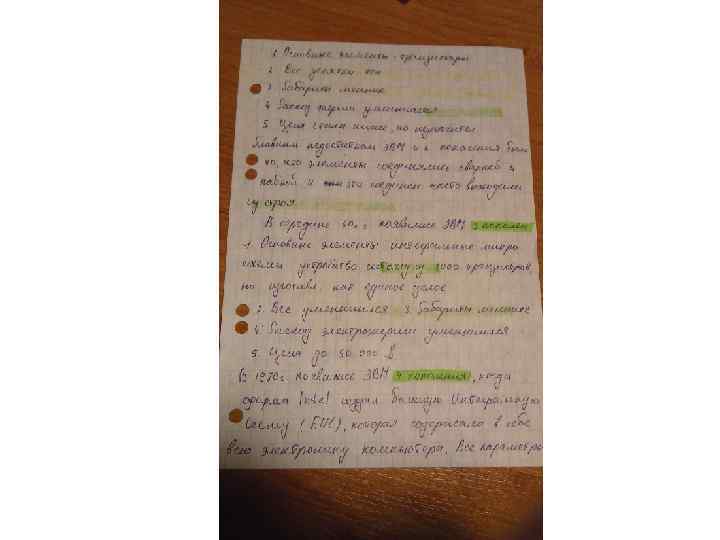 1. Основные элементы - транзисторы
2. Вес десятки кг
3. Габариты меньше
4. Расход энергии уменьшался
5. Цена стала ниже, но
Главным недостатком ЭВМ 2 поколения был
то, что элементы соединялись сваркой и
пайкой и эти соединен часто выходили
из строя.
В середине 60х г появились ЭВМ 3 поколен
1. Основные элементы интегральные микро
схемы устройство из 1000 транзисторов
но изготовл. как единое целое
2. Вес уменьшился 3. Габариты меньше
4. Расход электроэнергии уменьшился
5. Цена до 50 000 $
В 1970г. появились ЭВМ 4 поколения, когда
фирма Intel создал большую Интегральную
Схему (БИС), которая содержала в себе
всю электронику компьютера. Все параметры